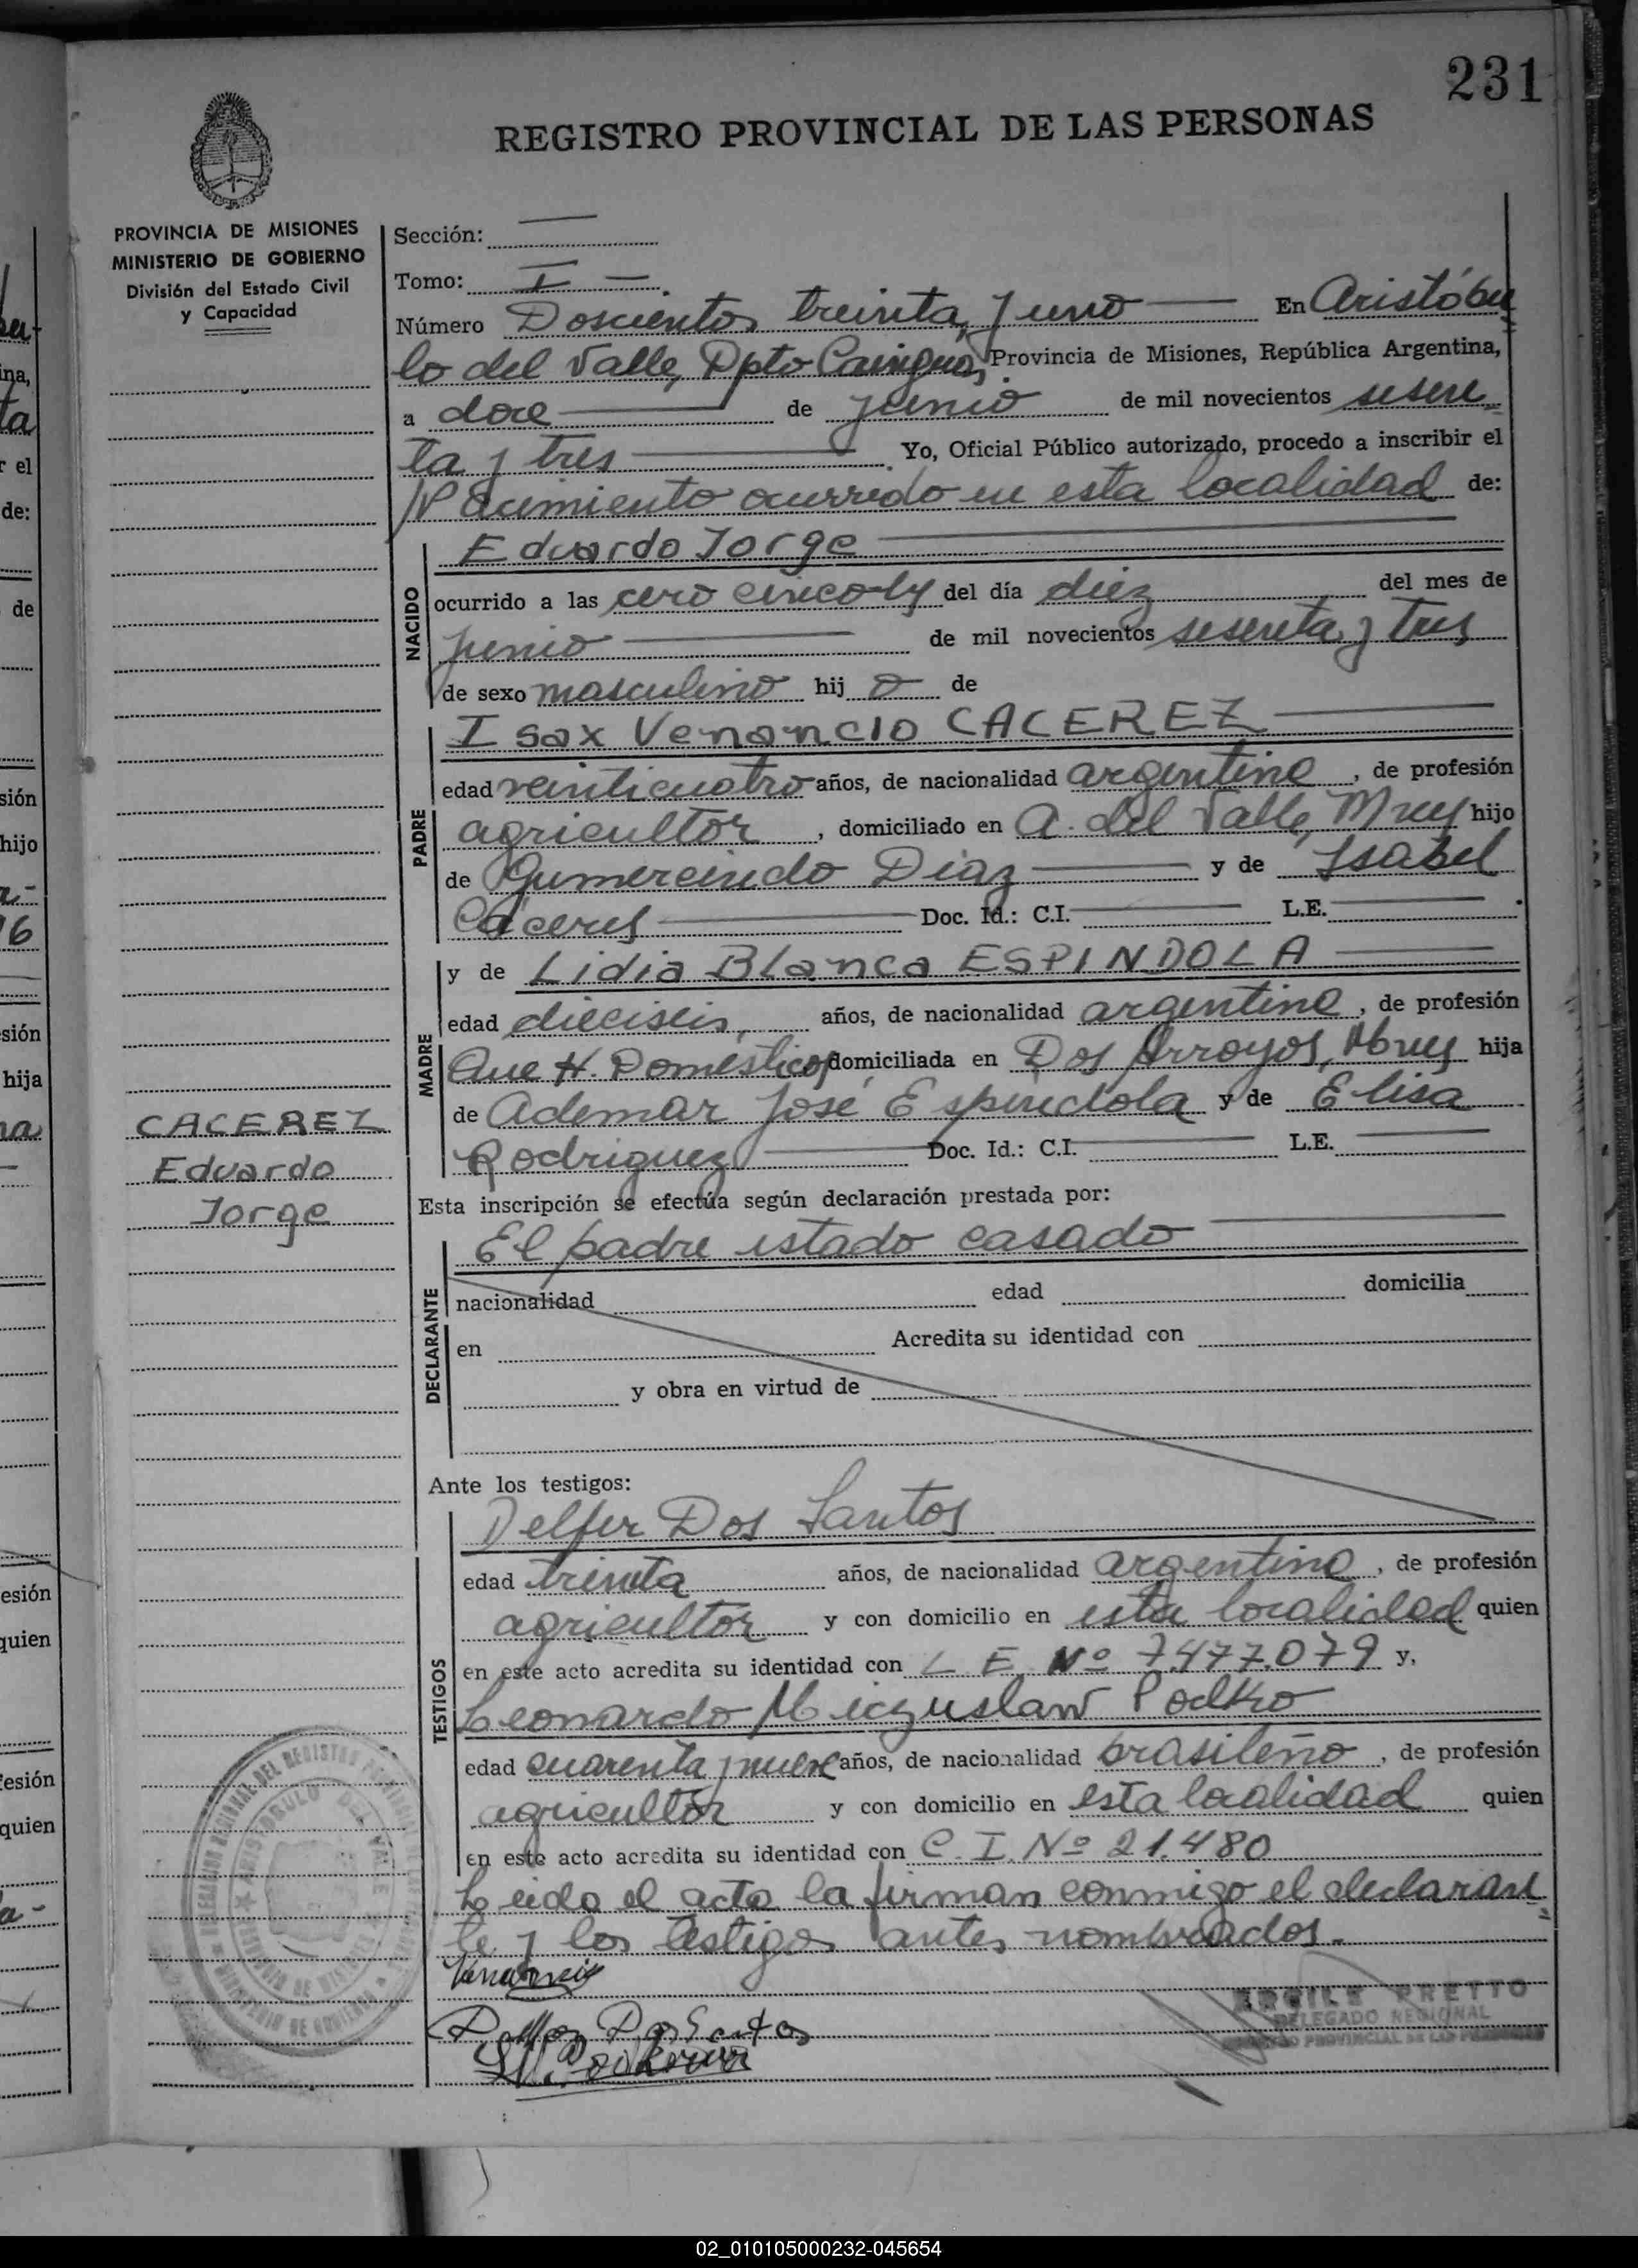 231
REGISTRO PROVINCIAL DE LAS PERSONAS
PROVINCIA DE MISIONES
MINISTERIO DE GOBIERNO
División del Estado Civil
y Capacidad
Sección:
Tomo: I
Número Doscientos treinta y uno En Aristóbu
lo del Valle, Dpto Cainguás, Provincia de Misiones, República Argentina,
a doce de junio de mil novecientos sesen
ta y tres Yo, Oficial Público autorizado, procedo a inscribir el
Nacimiento ocurredo en esta localidad de:
NACIDO
Eduardo Jorge
ocurrido a las cero cinco del día diez del mes de
junio de mil novecientos sesenta y tres
de sexo masculino hijo de
PADRE
Isax Venancio CACEREZ
edad veinticuatro años, de nacionalidad argentina, de profesión
agricultor, domiciliado en A. del Valle, Mnes hijo
de Gumercindo Diaz y de Isabel
Cáceres Doc. Id.: C.I. L.E.
MADRE
y de Lidia Blanca ESPINDOLA
edad dieciseis, años, de nacionalidad argentina, de profesión
Que H. Domésticos domiciliada en Dos Arroyos, Mnes hija
de Ademar José Espindola y de Elisa
Rodriguez Doc. Id.: C.I. L.E.
CACEREZ
Eduardo
Jorge
Esta inscripción se efectúa según declaración prestada por:
DECLARANTE
El padre estado casado
nacionalidad edad domicilia
en Acredita su identidad con
y obra en virtud de
Ante los testigos:
TESTIGOS
Delfer Dos Santos
edad treinta años, de nacionalidad argentina, de profesión
agricultor y con domicilio en esta localidad quien
en este acto acredita su identidad con L E. Nº 7.477.079 y,
Leonardo Mieczuslaw Podkro
edad cuarenta y nueve años, de nacionalidad brasileño, de profesión
agricultor y con domicilio en esta localidad quien
en este acto acredita su identidad con C. I. Nº 21.480
Leido el acta la firman conmigo el declaran
te y los testigos antes nombrados.
Dos Santos
ARGILE PRETTO
DELEGADO REGIONAL
REGISTRO PROVINCIAL DE LAS PERSONAS
02_010105000232-045654